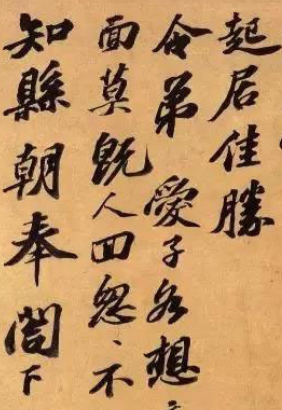 起居佳勝
令弟愛子各想
面莫既人回怱、不
知縣朝奉閤下